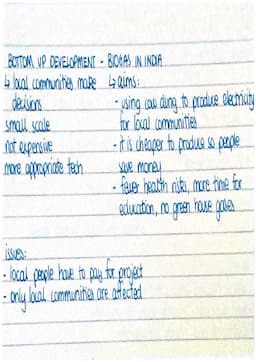 BOTTOM UP DEVELOPMENT - BIOGAS IN INDIA
↳ local communities make ↳ aims:
decisions - using cow dung to produce electricity
small scale for local communities
not expensive - it is cheaper to produce so people
more appropriate tech save money
- fewer health risks, more time for
education, no green house gases
issues:
- local people have to pay for project
- only local communities are affected